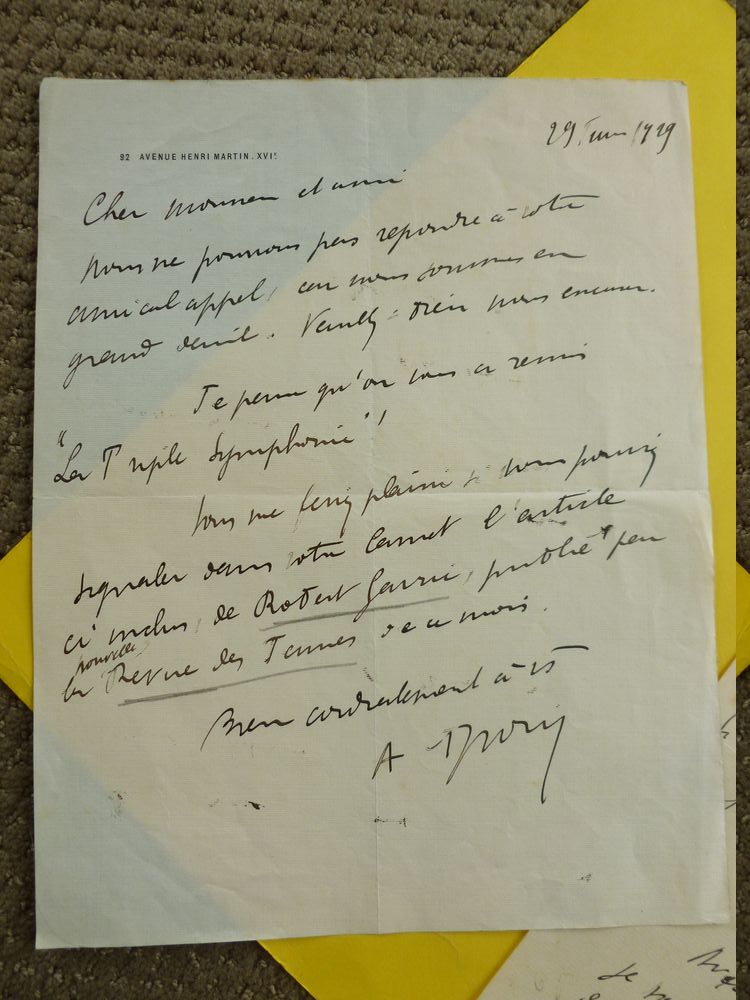 92 AVENUE HENRI MARTIN. XVIᵉ
29 Juin 1929
Cher Monsieur et ami
Nous ne pouvons pas repondre à votre
amical appel, car nous sommes en
grand deuil. Veuillez
Je pense qu'on vous a remis
"La Triple Symphonie"!
Vous me feriez plaisir si vous pouviez
signaler dans votre Carnet l'article
ci inclus, de Robert publié par
la nouvelle Revue des Jeunes de ce mois.
Bien cordialement à vs
A